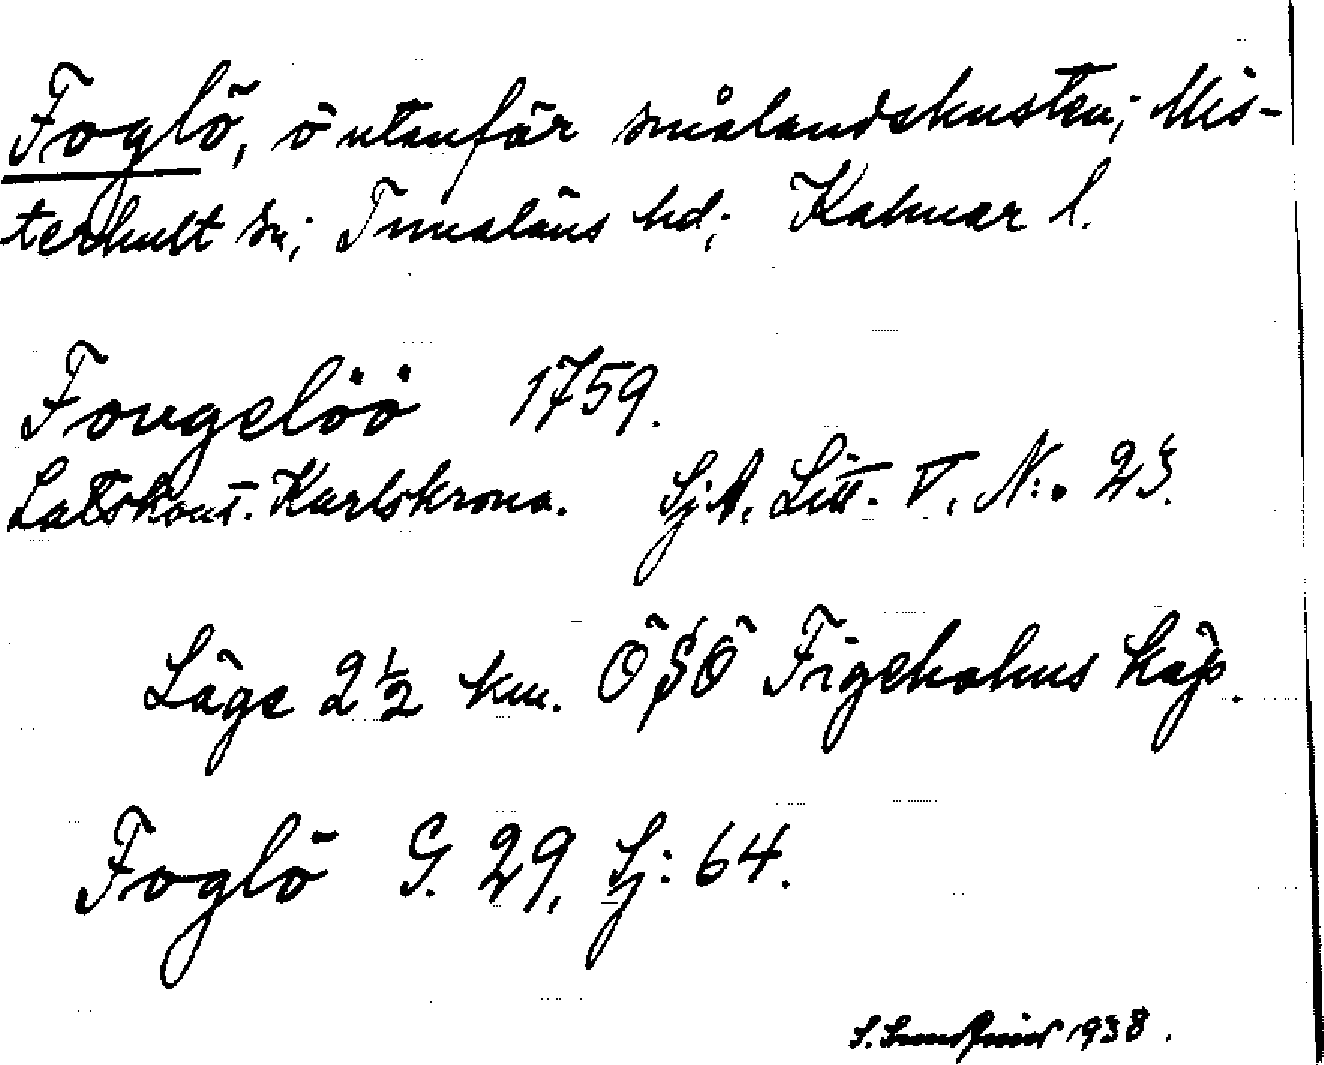 Foglö, ö utanför smålandskusten; Mis-
terhult sn; Tunaläns hd; Kalmar l.
Fougelöö 1759.
Lotskont. Karlskrona. SjA. Litt. V. N:. 23.
Läge 2 1/2 km. ÖSÖ Figeholms köp.
Foglö G. 29, Sj: 64.
S. 1938.